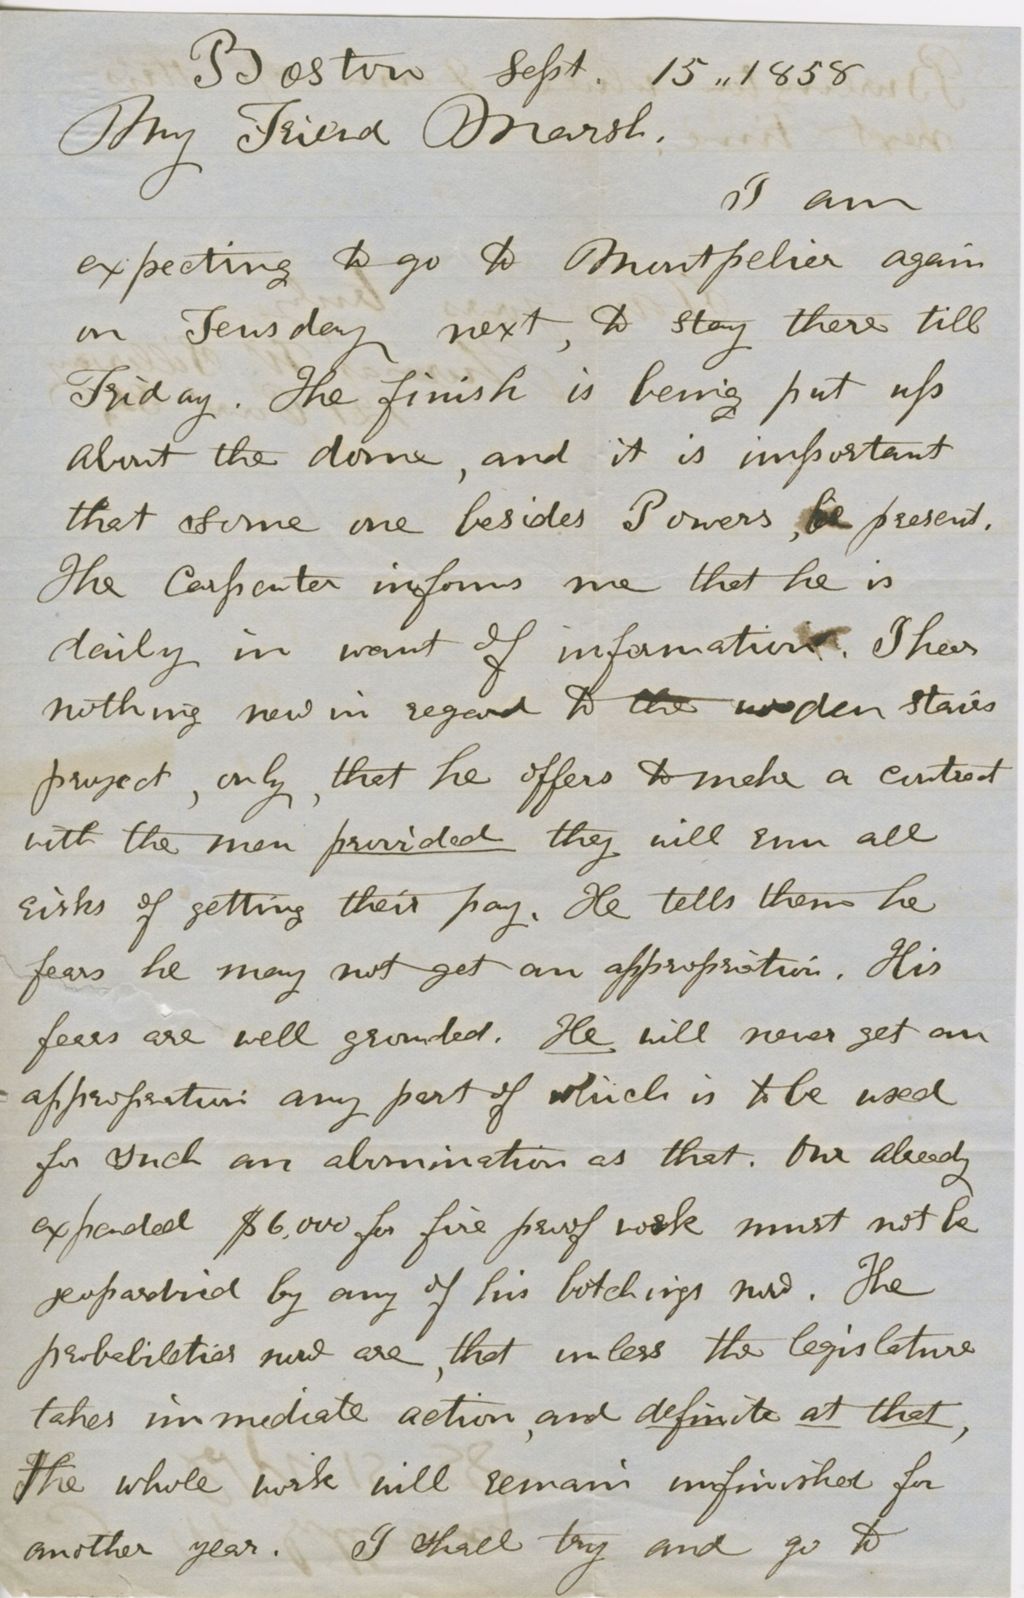 Boston Sept. 15,, 1858
My Friend Marsh.
I am
expecting to go to Montpelier again
on Teusday next, to stay there till
Friday. The finish is being put up
about the dome, and it is important
that some one besides Powers, be present.
The Carpenter informs me that he is
daily in want of information. I hear
nothing new in regard to the wooden stairs
project, only, that he offers to make a contract
with the men provided they will run all
risks of getting their pay. He tells them he
fears he may not get an appropriation. His
fears are well grounded. He will never get an
appropriation any part of which is to be used
for such an abomination as that. Our already
expended $6,000 for fire proof work must not be
jeopardized by any of his botchings now. The
probabilities now are, that unless the legislature
takes immediate action, and definite at that,
The whole work will remain unfinished for
another year. I shall try and go to